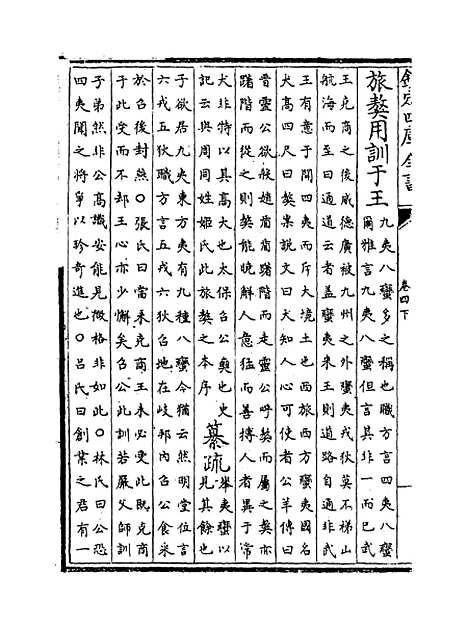 欽定四庫全書
卷四下
旅獒用訓于王
九夷八蠻多之稱也職方言四夷八蠻
爾雅言九夷八蠻但言其非一而已武
王克商之後威德廣被九州之外蠻夷戎狄莫不梯山
航海而至曰通道云者蓋蠻夷來王則道路自通非武
王有意于開四夷而斥大境土也西旅西方蠻夷國名
犬高四尺曰獒案說文曰犬知人心可使者公羊傳曰
晉靈公欲殺趙盾盾躇階而走靈公呼獒而屬之獒亦
躇階而從之則獒能曉解人意猛而善搏人者異于常
犬非特以其高大也太保召公奭也史
記云與周同姓姬氏此旅獒之本序
纂疏
舉夷蠻以
見其餘也
子欲居九夷東方夷有九種八蠻今猶云然明堂位言
六戎五狄職方言五戎六狄召地在岐邦內召公食采
於召後封燕○張氏曰當未克商王未必受此既克商
于此受而不却王心亦少懈矣召公此訓若嚴父師訓
子弟然非公高識安能見微格非如此○林氏曰公恐
四夷聞之將爭以珍奇進也○呂氏曰創業之君有一